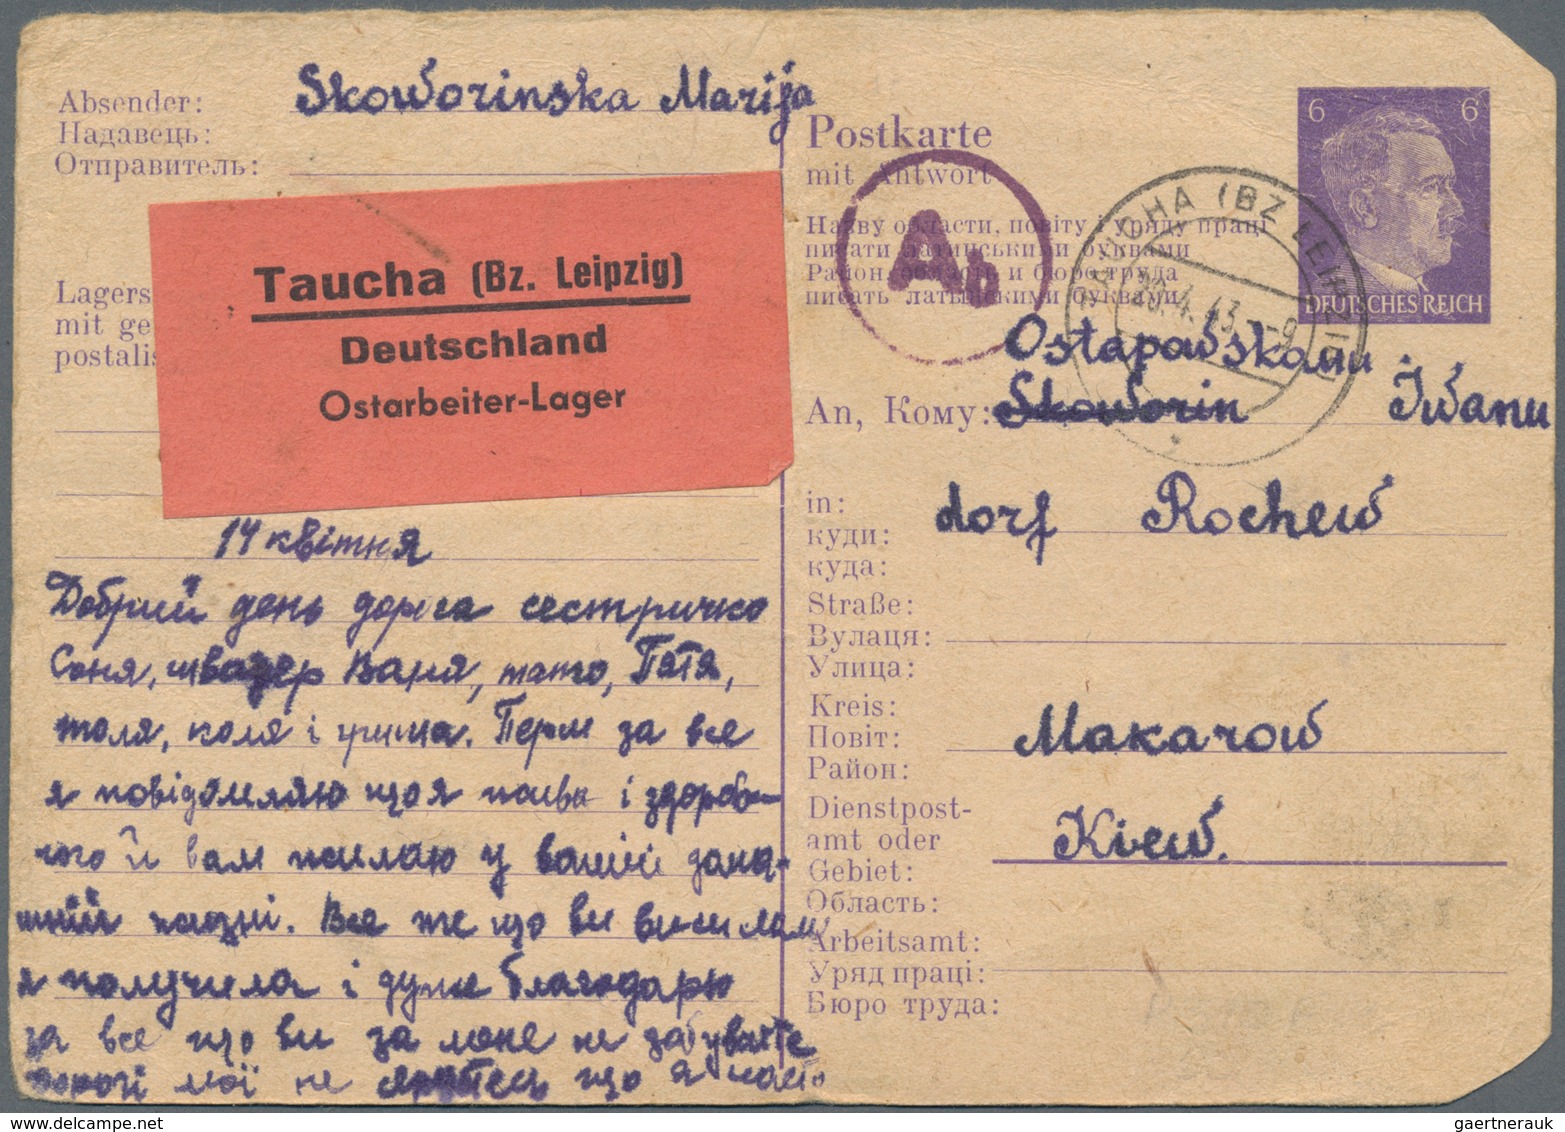 Absender: Skoworinska Marija
Надавець:
Отправитель:
Taucha (Bz. Leipzig)
Deutschland
Ostarbeiter-Lager
Lagers
mit ge
postalis
14 квітня
Добрий день дорога сестричко
Соня, швагер Ваня, тато, Петя,
толя, коля і гриша. Перш за все
я повідомляю що я жива і здорова
чого й вам желаю у вашій
жизні. Все же що ви висилали
я получила і дуже благодарю
за все що ви за мене не забуваєте
дорогі мої не що я
Postkarte
mit Antwort
Назву области, повіту і уряду праці
писати латинськими буквами
Район, область и бюро труда
писать латынскими буквами
Ab
TAUCHA (BZ LEIPZIG)
.4.43.--9
6 6
DEUTSCHES REICH
Ostapowskamu
An, Кому: Skoworin Iwanu
in: dorf Rochew
куди:
куда:
Straße:
Вулаця:
Улица:
Kreis: Makarow
Повіт:
Район:
Dienstpost-
amt oder Kiew.
Gebiet:
Область:
Arbeitsamt:
Уряд праці:
Бюро труда:
gaertnerauk